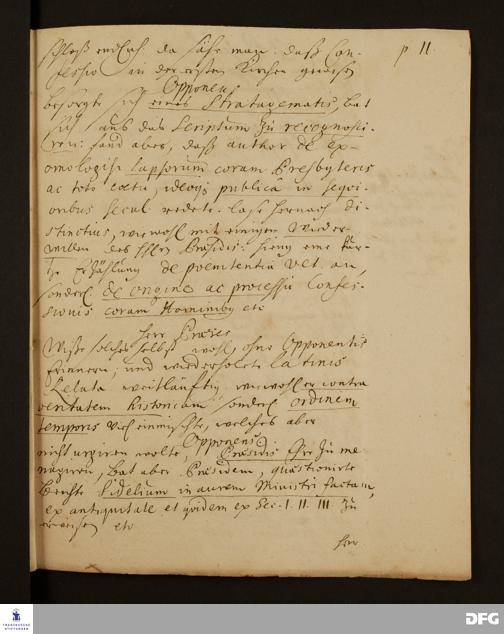 p 11.
schloß endlich. da sähe man. daß Con-
fessio in der ersten Kirchen gewesen
Opponens
besorgte sich eines Stratagematis, bat
sich aus das Scriptum zu recognosci-
ren: fand aber, daß author de ex-
omologesi lapsorum coram Presbyteris
ac toto coetu, ideoq; publica in sequi-
oribus secul redete. lase hernach di-
stinctius, wiewohl mit einigen Wieder-
willen des Praesidis: hieng eine kur-
tze Erzählung de poenitentia vet. an,
sonderl. de origine ac processu Confes-
sionis coram Hominibq etc
Herr Praeses
Wiße solches selbst wohl, ohne Opponentis
Erinnern; und wiederholete latinis
Relata weitläuftig. wiewohl er contra
veritatem historicam sonderl. ordinem
temporis viel einmischte, welches aber
Opponens
nicht urgiren wolte, Praesidis Ehre zu me-
nagiren, bat aber Praesidem, quaestionirte
Beichte fidelium in aurem Ministri factam,
ex antiquitate et quidem ex Sec. I. II. III. zu
erweisen etc
Herr
TRANCKESCHE STIFTUNGEN
DFG